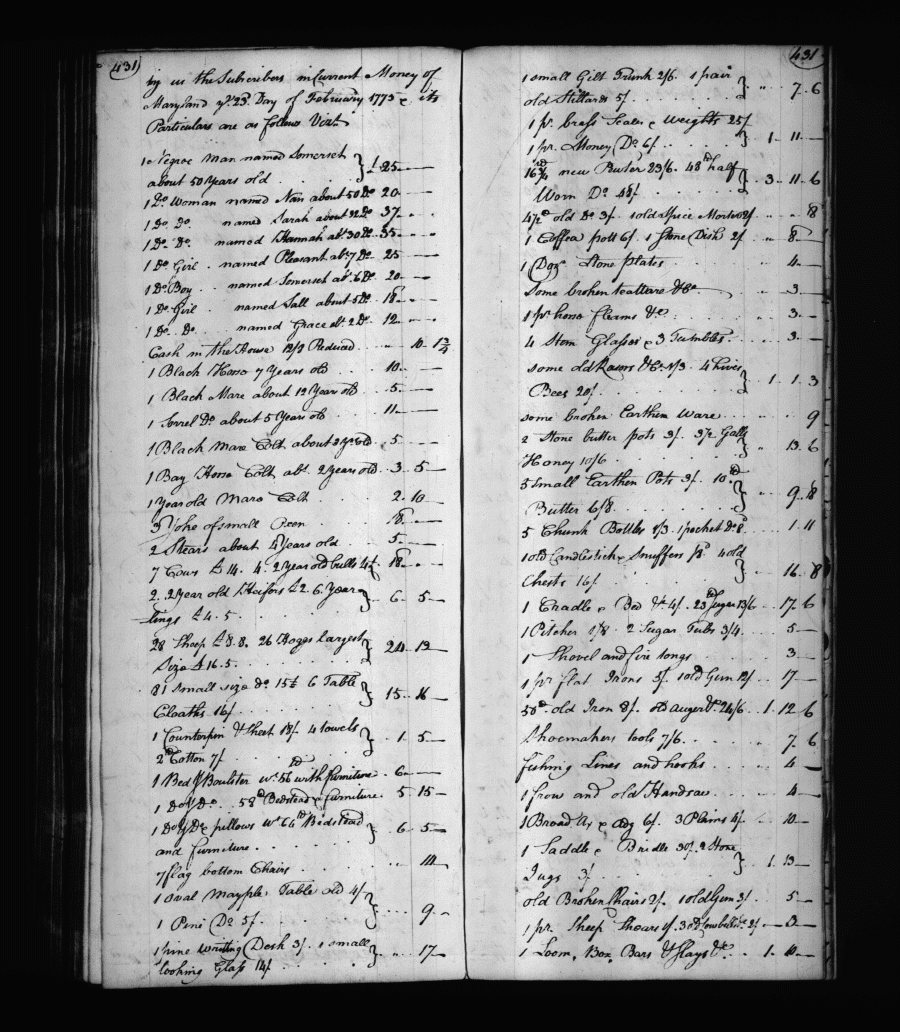 431
by us the Subscribers in Current Money of
Maryland ye 23d. Day of February 1775 & its
Particulars are as follows Vizt.
1 Negroe Man named Somerset
about 50 Years old £25
1 Do. Woman named Nan about 50 Do. 20
1 Do. Do. named Sarah about 32 Do. 37
1 Do. Do. named Hannah abt. 30 Do. 35
1 Do. Girl named Pleasant abt. 7 Do. 25
1 Do. Boy named Somerset abt. 6 Do. 20
1 Do. Girl named Sall about 5 Do. 18
1 Do. Do. named Grace abt. 2 Do. 12
Cash in the House 12/9 Reduced 10 1¾
1 Black Horse 7 Years old 10
1 Black Mare about 12 Year old 5
1 Sorrel Do. about 5 Year old 11
1 Black Mare Colt about 2 yrs. old 5
1 Bay Horse Colt abt. 2 years old 3 5
1 Year old Mare Colt 2 10
3 Yoke of small Oxen 18
2 Stears about 4 Years old 5
7 Cows £14. 4. 2 Year old bulls 4£ 18
2. 2 Year old Heifors £2. 6 Year
lings £4.5 6 5
28 Sheep £8.8. 26 Hoggs largest
Size £16.5 24 13
31 small size do. 15£ 6 Table
Cloaths 16/ 15 16
1 Counterpin & Sheet 18/. 4 towels
2d Cotton 7/ 1 5
1 Bed & Boulster wt. 56 lb with furniture 6
1 Do. & Do. 58 lb Bedstead & furniture 5 15
1 Do. & Do. & pillows wt. 64 lb Bedstead
and furniture 6 5
7 flag bottom Chairs 14
1 oval Mayple Table old 4/
1 Pine Do. 5/ 9
1 pine Writting Desk 3/. 1 small
looking Glass 14/ 17
431
1 small Gilt Trunk 2/6. 1 pair
old Stiliards 5/ 7 6
1 pr. brass Scales & Weights 25/
1 pr. Money Do. 6/ 1 11
16¾ lb new Puter 23/6. 48 lb half
Worn Do. 48/ 3 11 6
4½ lb old Do. 3/. 1 old Spice Mortar 8
1 Coffea pott 6/. 1 Stone Dish 2/ 8
1 Dozn. Stone plates 4
Some broken teaware &c. 3
1 pr. horse fleams &c. 3
4 Stem Glasses & 3 Tumblers 3
some old Rasors &c. 1/3. 4 hives
Bees 20/ 1 1 3
some broken Earthen Ware 9
2 Stone butter pots 3/. 3½ Galls
Honey 10/6 13 6
5 small Earthen Pots 3/. 10 lb
Butter 6/8 9 8
5 Chunk Bottles 1/3 1 pocket do. 8d 1 11
1 old Candlestick & Snuffers 4 old
Chests 16/ 16 8
1 Cradle & Bed &c. 4/. 23 lb Sugar 13/6 17 6
1 Pitcher 1/8. 2 Sugar Tubs 3/4 5
1 Shovel and fire tongs 3
1 pr. flat Irons 5/. 1 old Gun 12/ 17
50 lb old Iron 8/. old auger &c. 24/6 1 12 6
Shoemakers tools 7/6 7 6
fishing Lines and hooks 4
1 frow and old Handsaw 4
1 Broad Ax & Adg 6/. 3 Plains 4/ 10
1 Saddle & Bridle 30/. 2 Stone
Jugs 3/ 1 13
old Broken Chairs 2/. 1 old Gum 3/ 5
1 pr. Sheep Shears 1/. 3 old Cowbells &c. 2/ 3
1 Loom, Box, Bars & Slays &c. 1 10